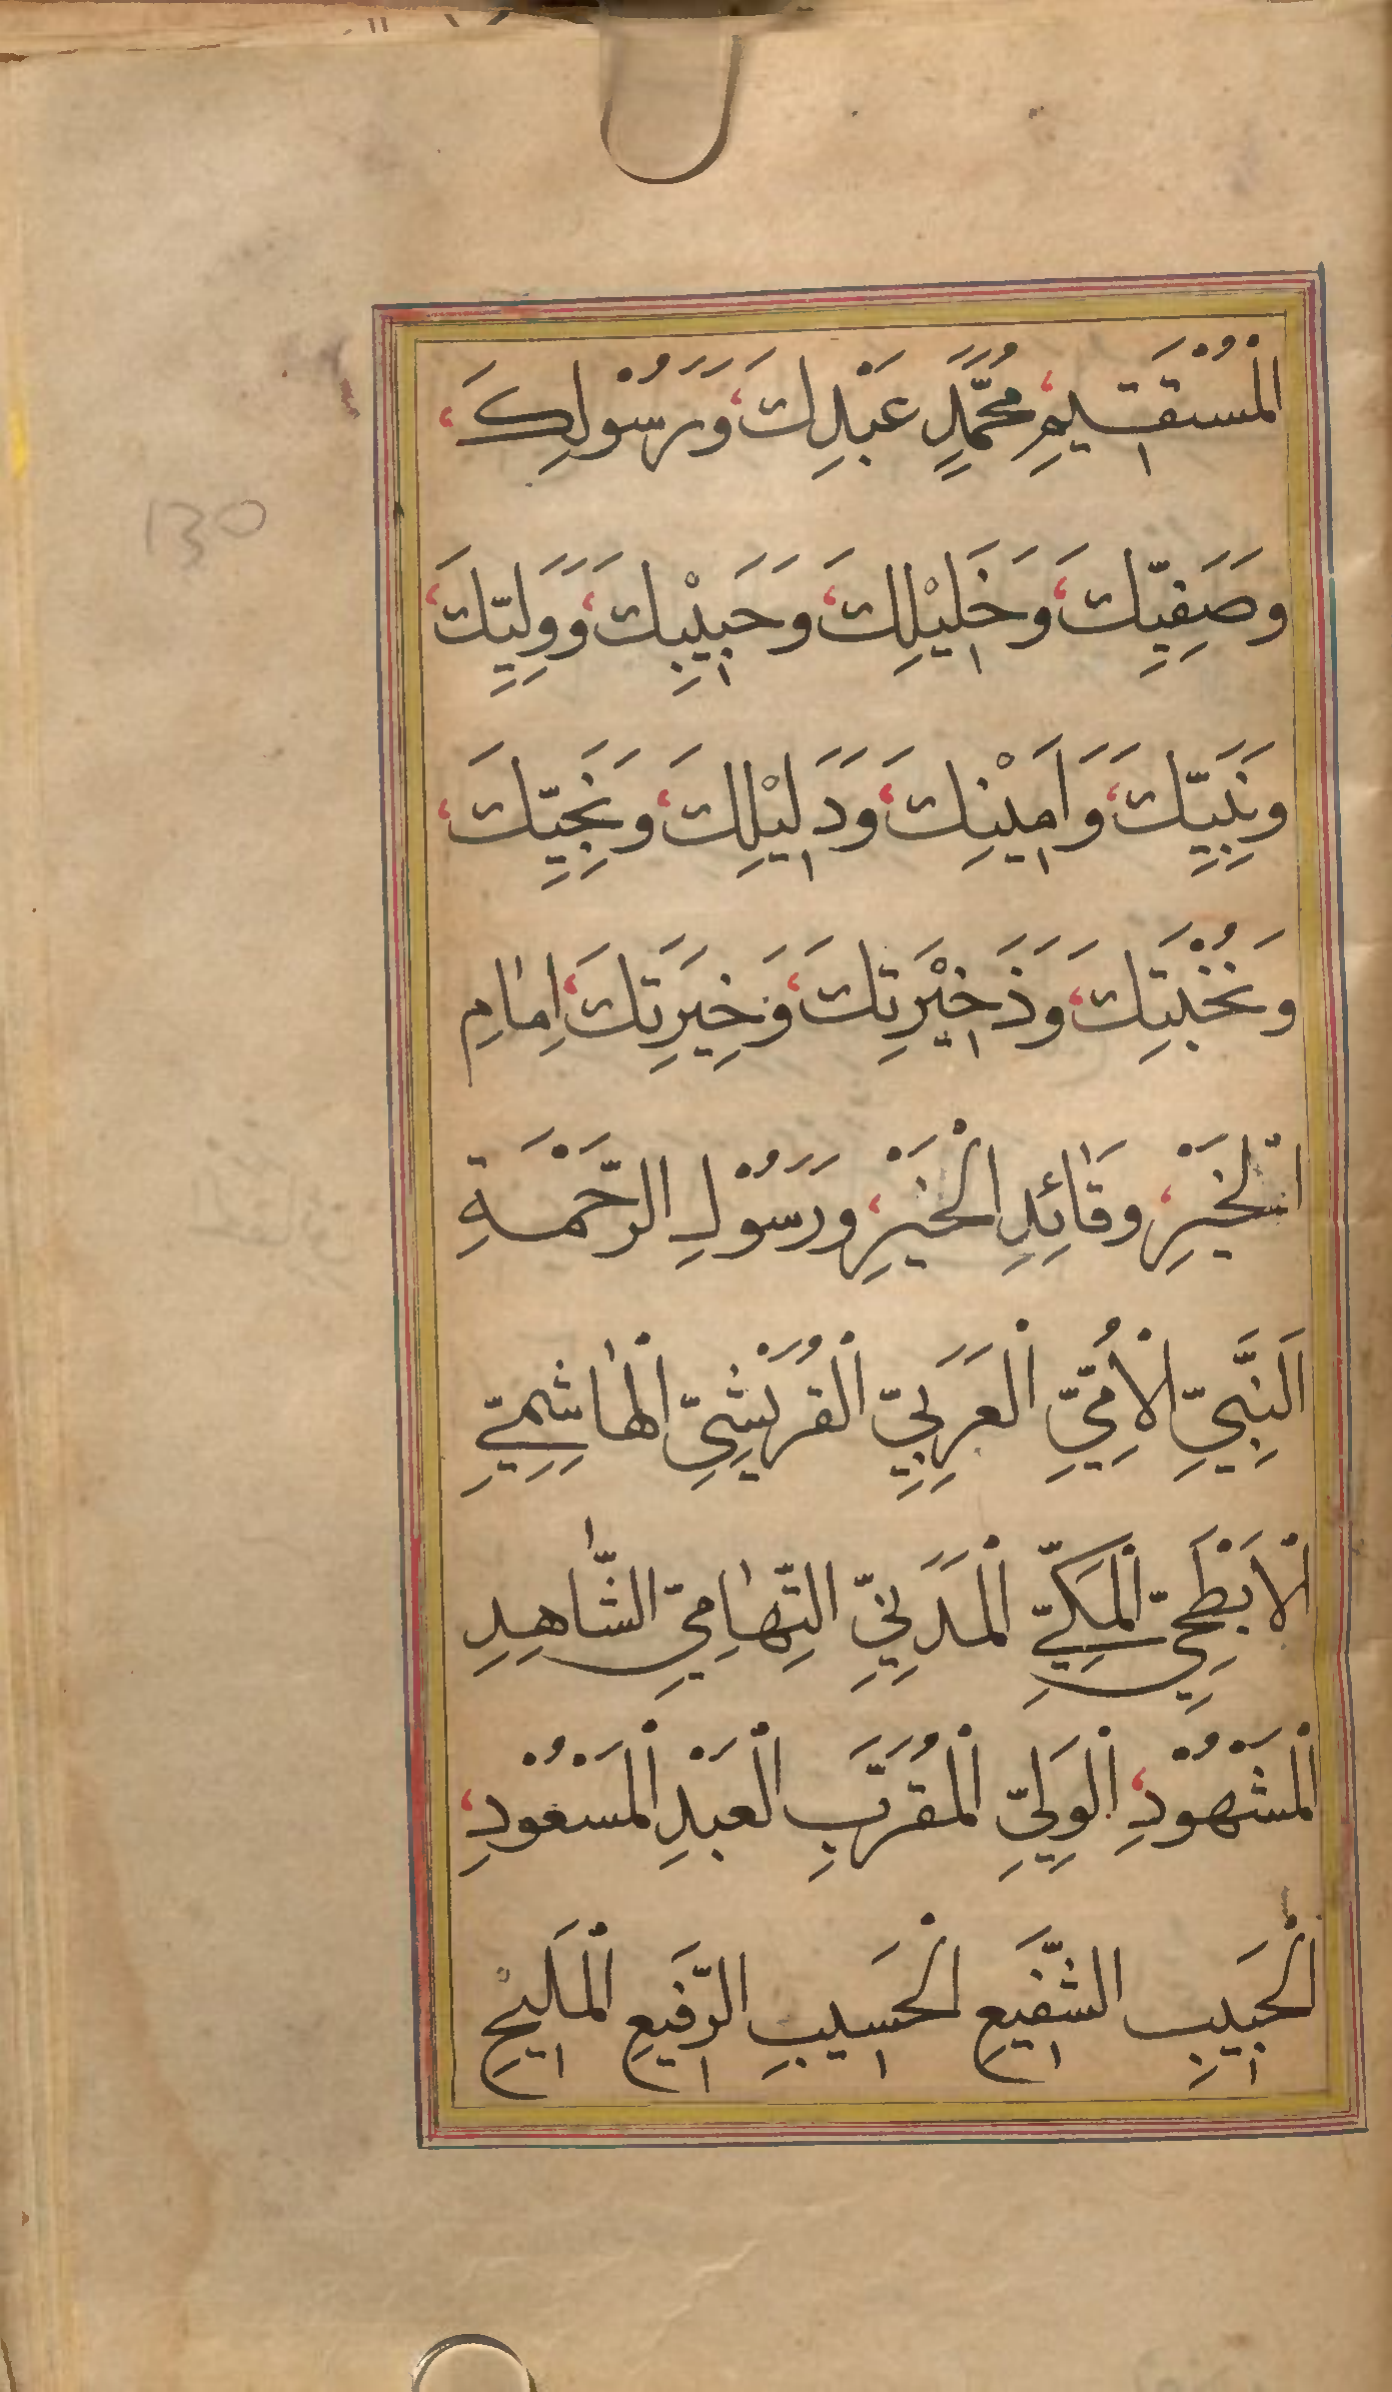 الْمُسْتَقِيمِ مُحَمَّدٍ عَبْدِكَ وَرَسُوْلِكَ
وَصَفِيِّكَ وَخَلِيْلِكَ وَحَبِيْبِكَ وَوَلِيِّكَ
وَنَبِيِّكَ وَاَمِيْنِكَ وَدَلِيْلِكَ وَنَجِيِّكَ
وَنُخْبَتِكَ وَذَخِيْرَتِكَ وَخِيَرَتِكَ اِمَامِ
الْخَيْرِ وَقَائِدِ الْخَيْرِ وَرَسُوْلِ الرَّحْمَةِ
اَلنَّبِيِّ الْاُمِّيِّ الْعَرَبِيِّ الْقُرَيْشِيِّ الْهَاشِمِيِّ
الْاَبْطَحِيِّ الْمَكِّيِّ الْمَدَنِيِّ التِّهَامِيِّ الشَّاهِدِ
الْمَشْهُوْدِ الْوَلِيِّ الْمُقَرَّبِ الْعَبْدِ الْمَسْعُوْدِ
الْحَبِيبِ الشَّفِيعِ الْحَسِيبِ الرَّفِيعِ الْمَلِيْحِ
130